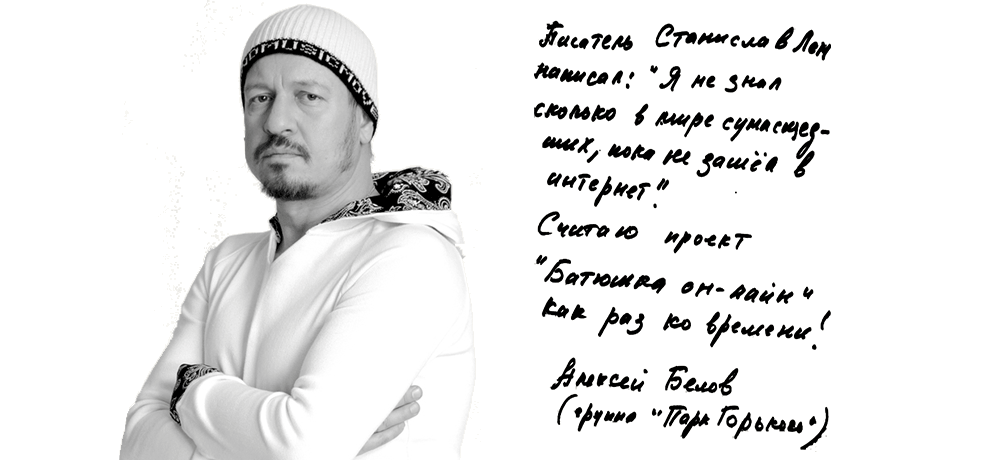 Писатель Станислав Лем
написал: "Я не знал
сколько в мире сумасшед-
ших, пока не зашёл в
интернет".
Считаю проект
"Батюшка он-лайн"
как раз ко времени!
Алексей Белов
(группа "Парк Горького")